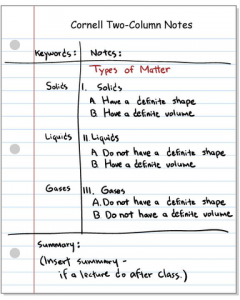 Cornell Two-Column Notes
Keywords: Notes:
Types of Matter
Solids I. Solids
A. Have a definite shape
B. Have a definite volume
Liquids II. Liquids
A. Do not have a definite shape
B. Have a definite volume
Gases III. Gases
A. Do not have a definite shape
B Do not have a definite volume
Summary:
(Insert summary -
if a lecture do after class.)